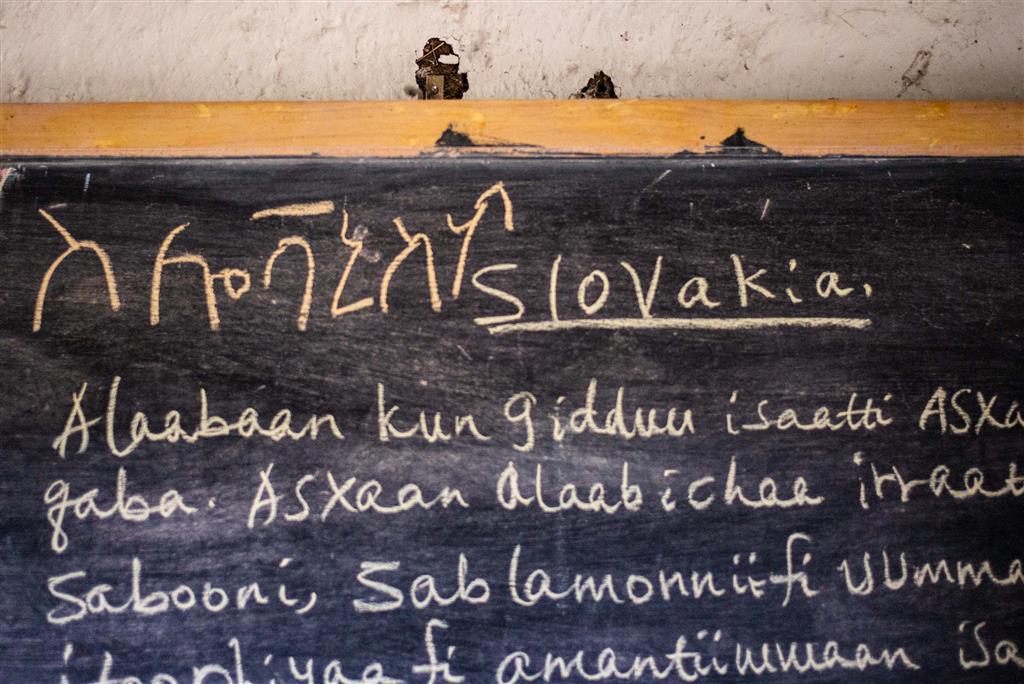 Slovakia.
Alaabaan kun gidduu isaatti ASXa
gaba. ASXaan alaabichaa irraat
Sabooni, Sablamonnii-fi uumma
itoophiyaa fi amantiiwwaan isa